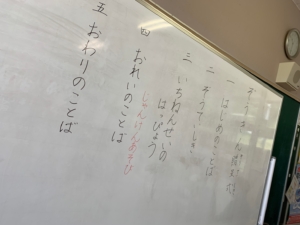 一 はじめのことば
二
三 いちねんせいの
はっぴょう
じゃんけんあそび
四 おれいのことば
五 おわりのことば